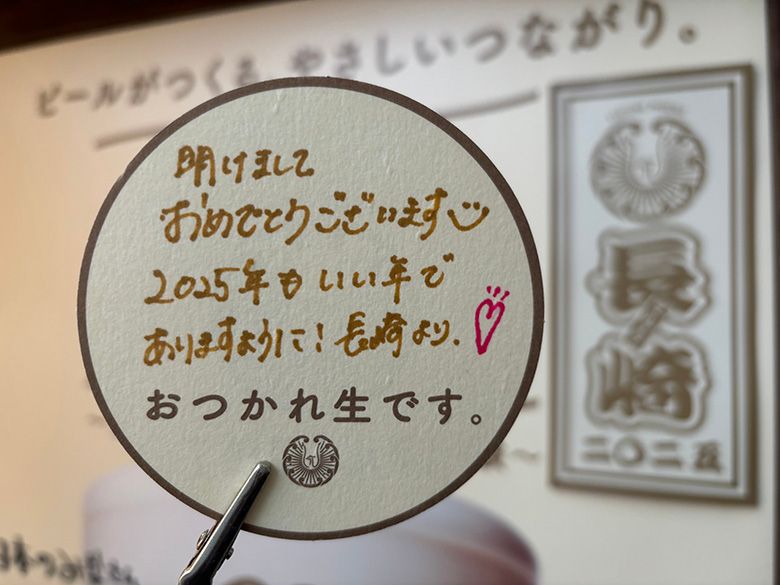 ビールがつくる、やさしいつながり。
明けまして
おめでとうございます
2025年もいい年で
ありますように！長崎より.
おつかれ生です。
長ノ崎
二〇二五